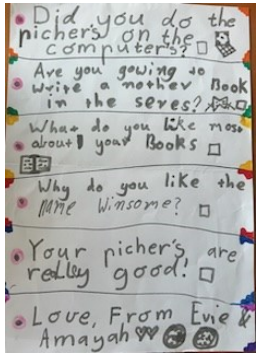 Did you do the
picher's on the
computer's?
Are you gowing to
write a nother Book
in the seres?
What do you like most
about your Books
Why do you like the
name Winsome?
Your picher's are
relley good!
Love, From Evie &
Amayah